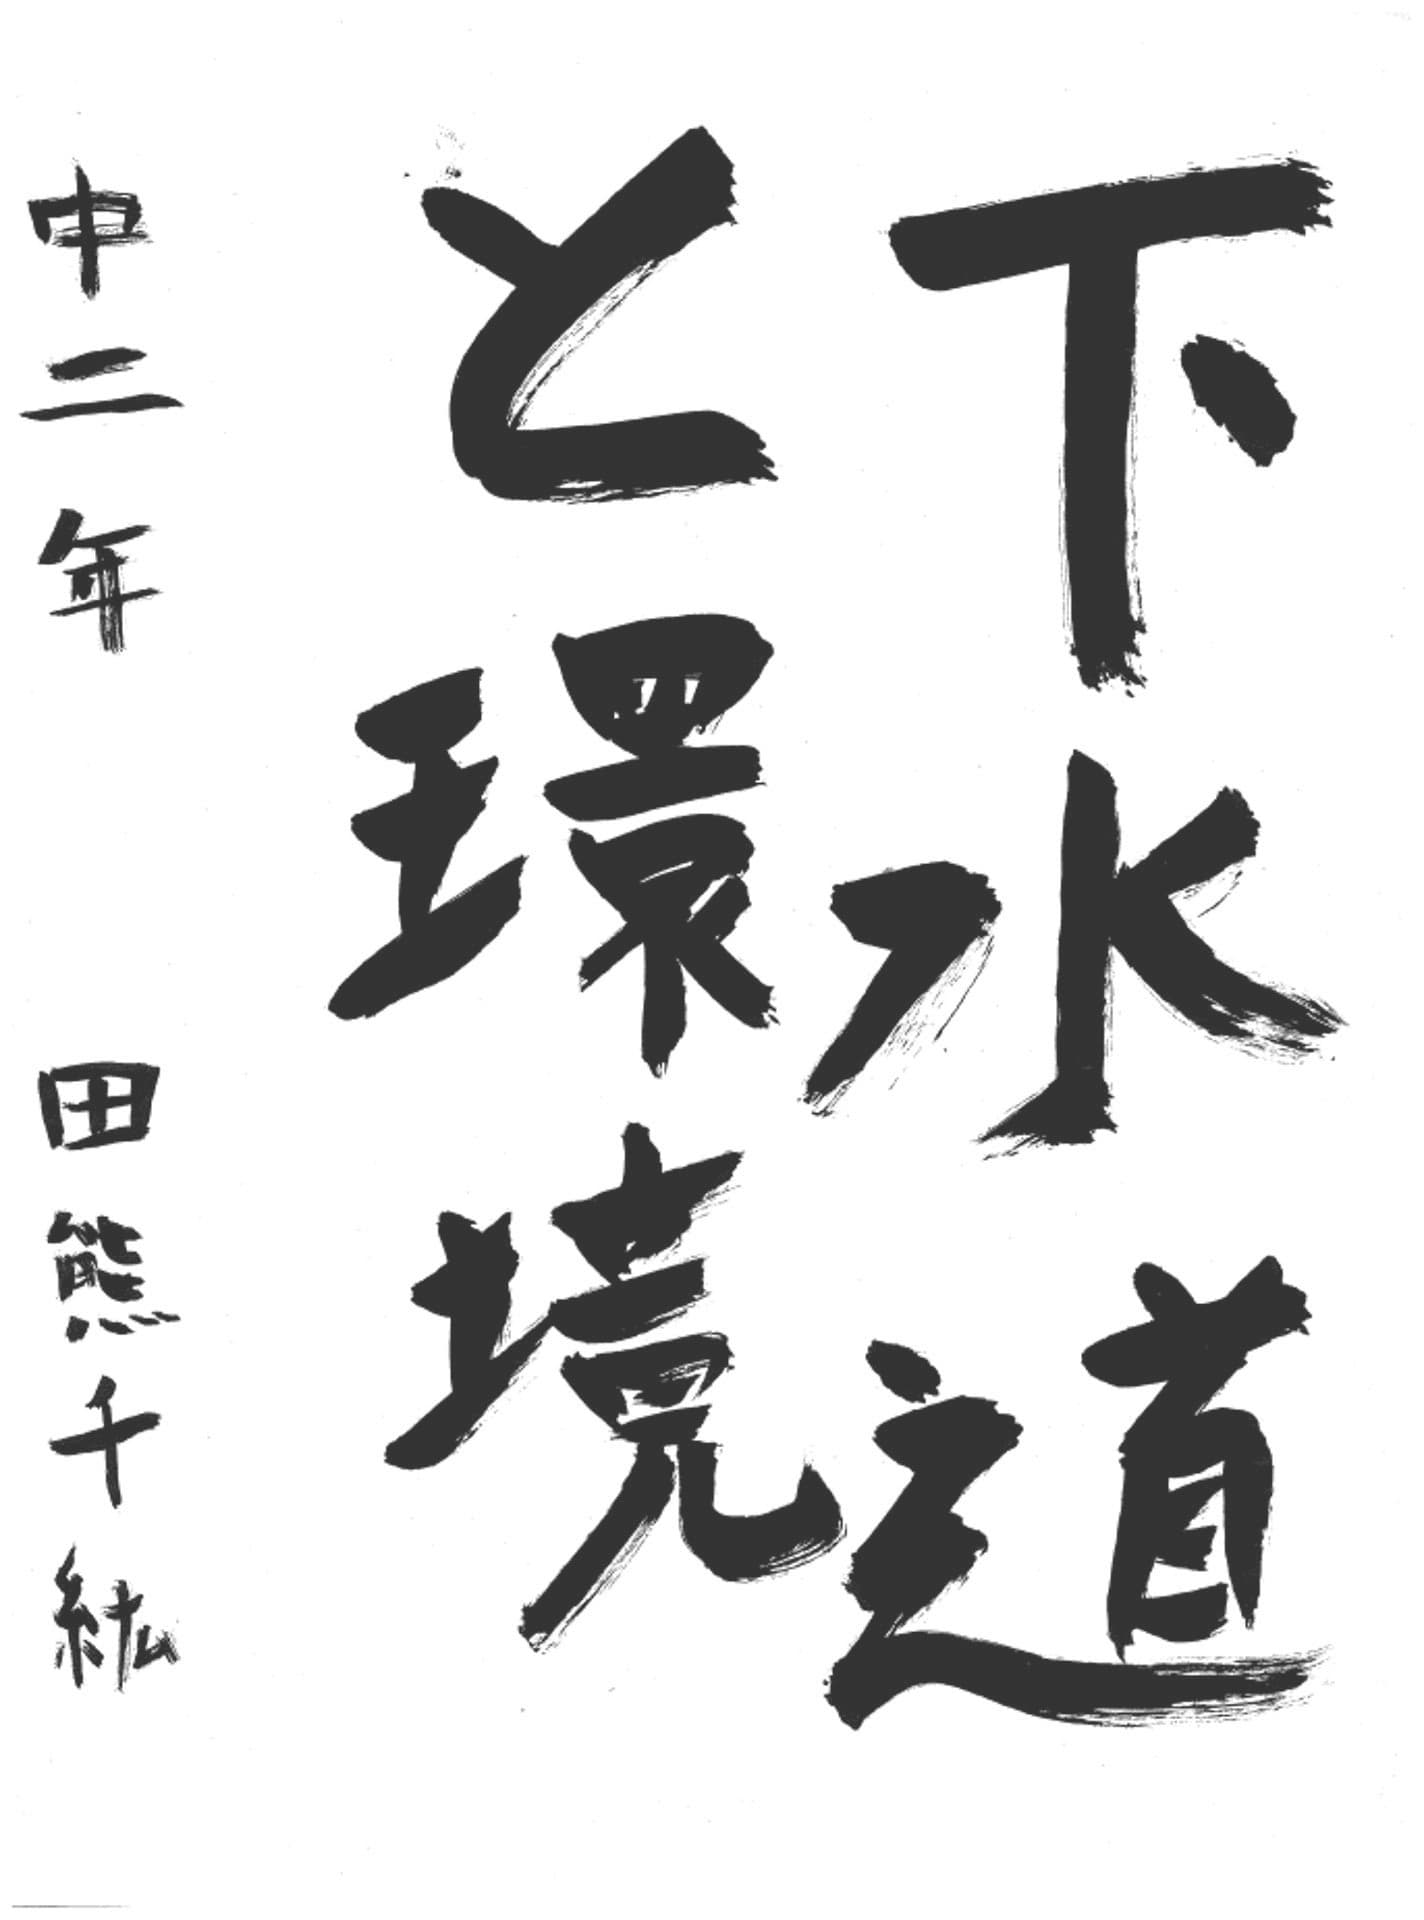 下水道
と環境
中二年 田熊千紘